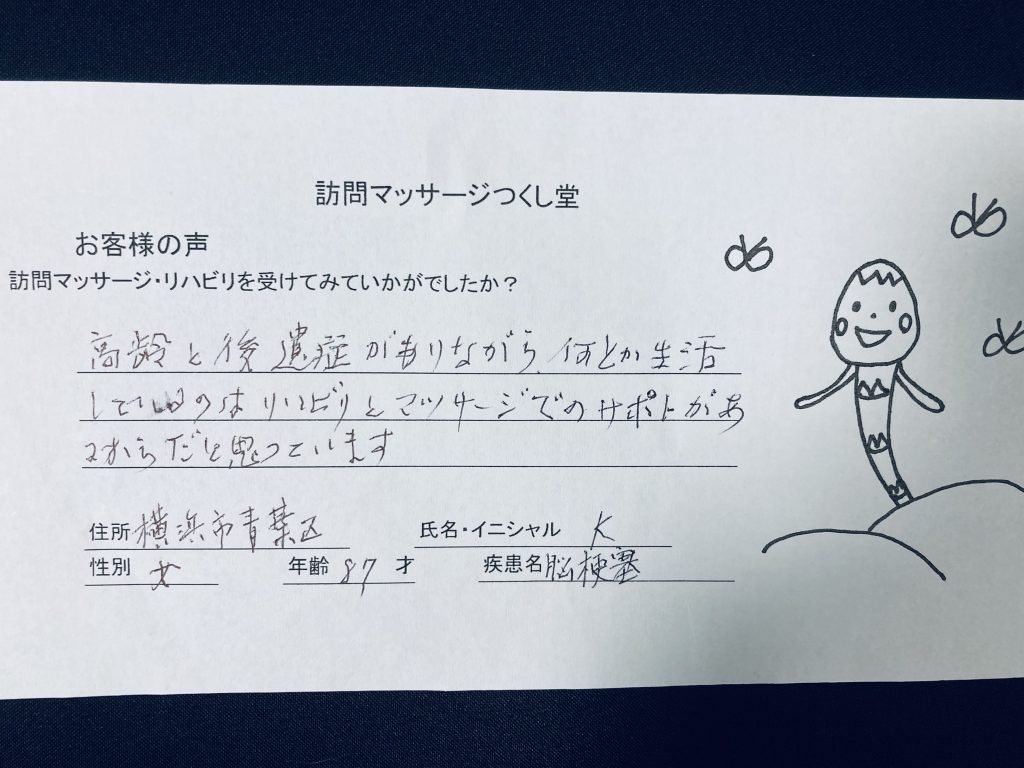 訪問マッサージつくし堂
お客様の声
訪問マッサージ・リハビリを受けてみていかがでしたか？
高齢と後遺症がありながら、何とか生活
しているのはリハビリとマッサージでのサポートがあ
るからだと思っています
住所 横浜市青葉区 氏名・イニシャル K
性別 女 年齢 87 才 疾患名 脳梗塞